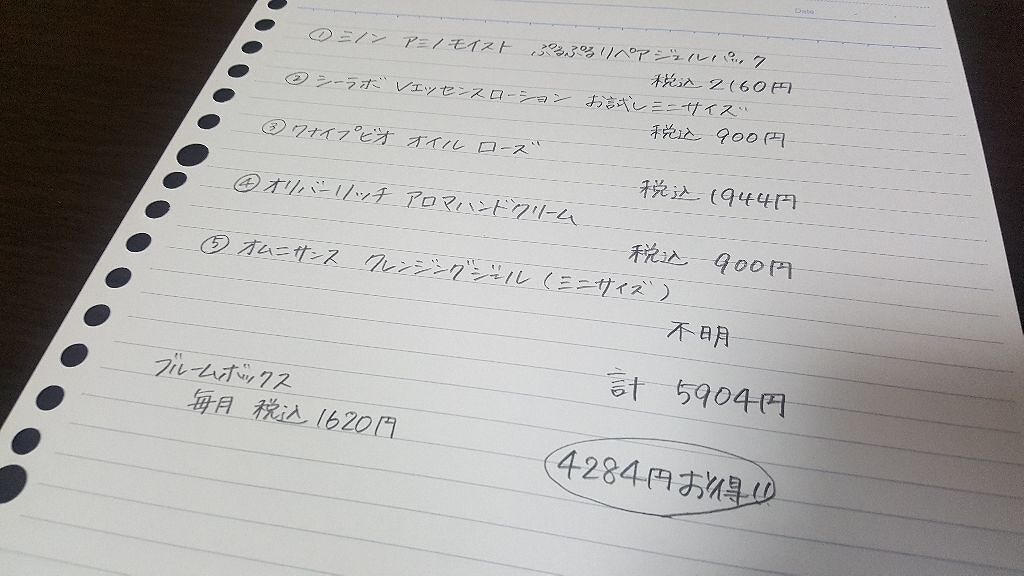 Date
① ミノン アミノモイスト ぷるぷるリペアジェルパック
税込 2160円
② シーラボ Vエッセンスローション お試しミニサイズ
税込 900円
③ ワナイプビオ オイル ローズ
税込 1944円
④ オリバーリッチ アロマハンドクリーム
税込 900円
⑤ オムニサンス クレンジングジェル(ミニサイズ)
不明
計 5904円
ブルームボックス
毎月 税込 1620円
4284円お得!!